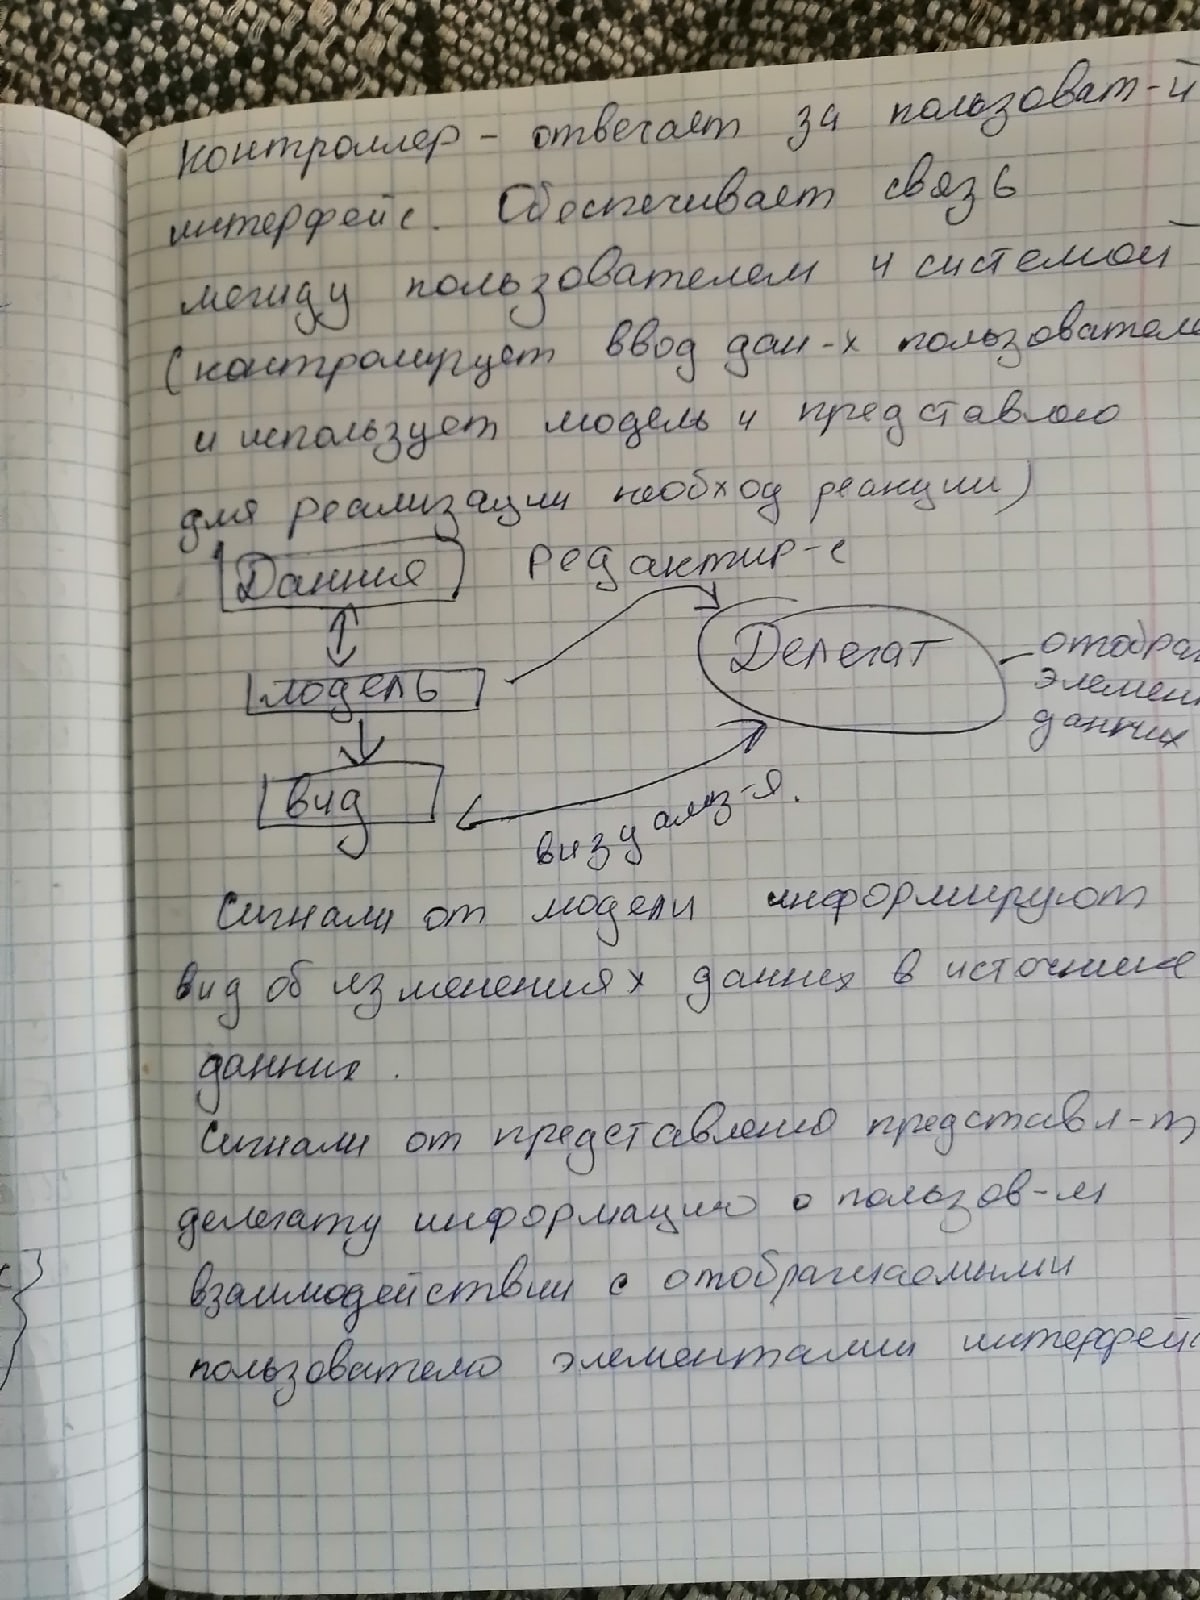 Контроллер - отвечает за пользоват-й
интерфейс. Обеспечивает связь
между пользователем и системой
(контролирует ввод дан-х пользователем
и использует модель и представлю
для реализации необход реакции)
Данния редактир-е
Делегат
модель
отображ
элемен
данних
вид
визуализ-я.
Сигнали от модели информируют
вид об изменениях данних в источнике
данних.
Сигнали от представлению представл-т
делегату информацию о пользов-м
взаимодействии с отображаемыми
пользователю элементами интерфейс